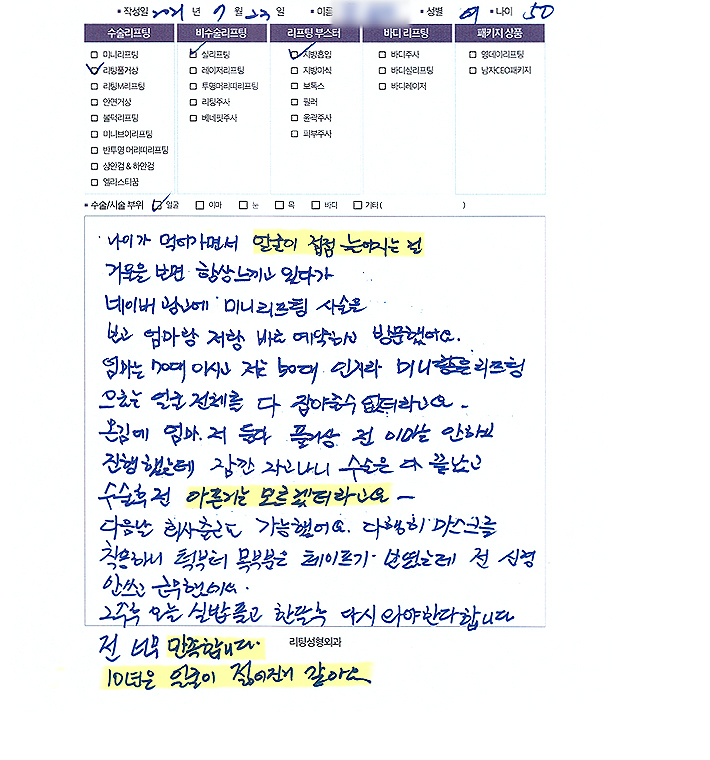 • 작성일 2021 년 7 월 22 일 • 이름 • 성별 여 • 나이 50
수술리프팅 비수술리프팅 리프팅 부스터 바디 리프팅 패키지 상품
미니리프팅 실리프팅 지방흡입 바디주사 영데이리프팅
리팅풀거상 레이저리프팅 지방이식 바디실리프팅 남자CEO패키지
리팅M리프팅 투명머리띠리프팅 보톡스 바디레이저
안면거상 리팅주사 필러
불턱리프팅 베네핏주사 윤곽주사
미니브이리프팅 피부주사
반투명 머리띠리프팅
상안검 & 하안검
엘라스티꿈
• 수술/시술 부위 얼굴 이마 눈 목 바디 기타 ( )
나이가 먹어가면서 얼굴이 점점 늘어지는 걸
거울을 보면 항상느끼고 있다가
네이버 광고에 미니리프팅 시술을
보고 엄마랑 저랑 바로 예약하고 방문했어요.
엄마는 70대 이시고 저는 50대 인지라 미니 리프팅
으로는 얼굴 전체를 다 잡아줄수 없더라고요 -
온김에 엄마. 저 둘다 풀거상 전 이마는 안하고
진행했는데 잠깐 자고나니 수술은 다 끝났고
수술후 전 아픈지는 모르겠더라고요 -
다음날 회사출근도 가능했어요. 다행히 마스크를
착용하니 턱부터 목부분은 테이프가 전 신경
안쓰고 근무했어요.
2주후 오늘 실밥풀고 한달후 다시 와야한다합니다
리팅성형외과
전 너무 만족합니다.
10년은 얼굴이 젊어진거 같아요